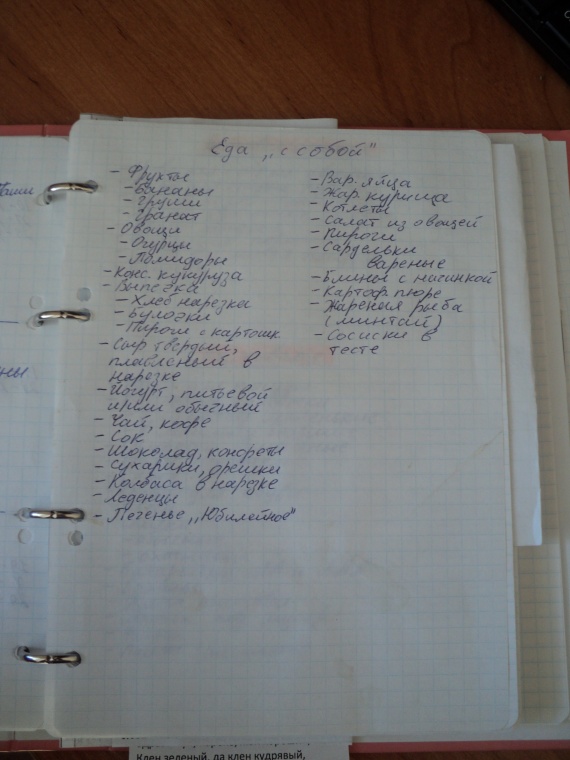 Еда „с собой"
- Фрукты
- Бананы
- Груши
- Гранат
- Овощи
- Огурцы
- Помидоры
- Конс. кукуруза
- Выпечка
- Хлеб нарезка
- Булочки
- Пироги с картошк.
- Сыр твердый,
плавленный в
нарезке
- Йогурт, питьевой
и/или обычный
- Чай, кофе
- Сок
- Шоколад, конфеты
- Сухарики, орешки
- Колбаса в нарезке
- Леденцы
- Печенье „Юбилейное"
- Вар. яйца
- Жар. курица
- Котлеты
- Салат из овощей
- Пироги
- Сардельки
вареные
- Блины с начинкой
- Картоф. пюре
- Жареная рыба
(минтай)
- Сосиски в
тесте
Клен зеленый, да клен кудрявый,